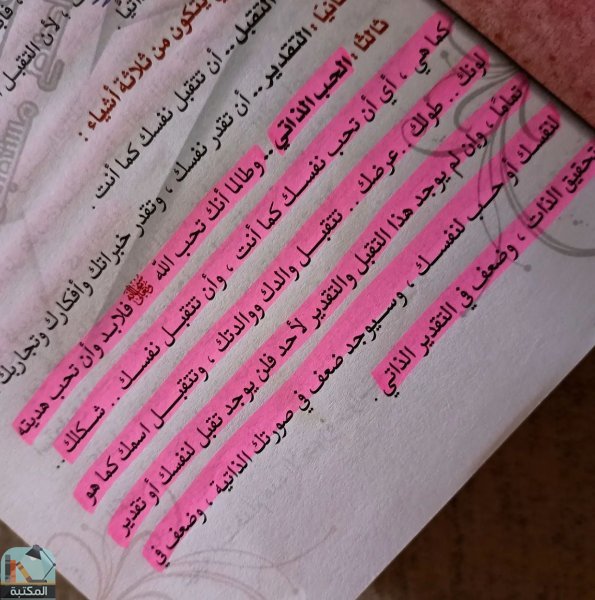 ، لأن التقبل
يتكون من ثلاثة أشياء :
التقبل .. أن تتقبل نفسك كما أنت .
ثانيًا : التقدير .. أن تقدر نفسك ، وتقدر خبراتك وأفكارك وتجاربك
ثالثًا : الحب الذاتي .. وطالما أنك تحب الله ﷻ فلابد وأن تحب هديته
كما هي ، أي أن تحب نفسك كما أنت ، وأن تتقبل نفسك .. شكلك ..
لونك .. طولك .. عرضك .. تتقبل والدك ووالدتك ، وتتقبل اسمك كما هو
تمامًا ، وإن لم يوجد هذا التقبل والتقدير لأحد فلن يوجد تقبل لنفسك أو تقدير
لنفسك أو حب لنفسك ، وسيوجد ضعف في صورتك الذاتية ، وضعف في
تحقيق الذات ، وضعف في التقدير الذاتي .
المكتبة